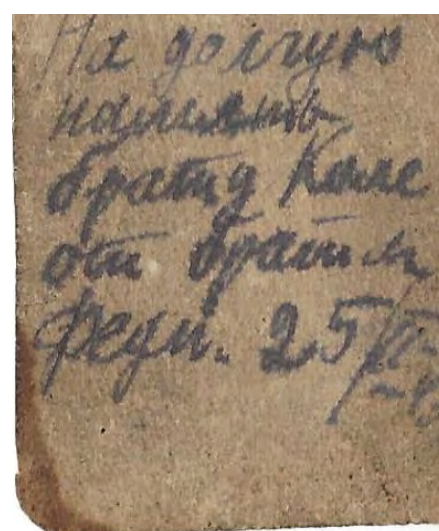 На долгую
память
брату Коле
от братишки
Феди. 25/VI-